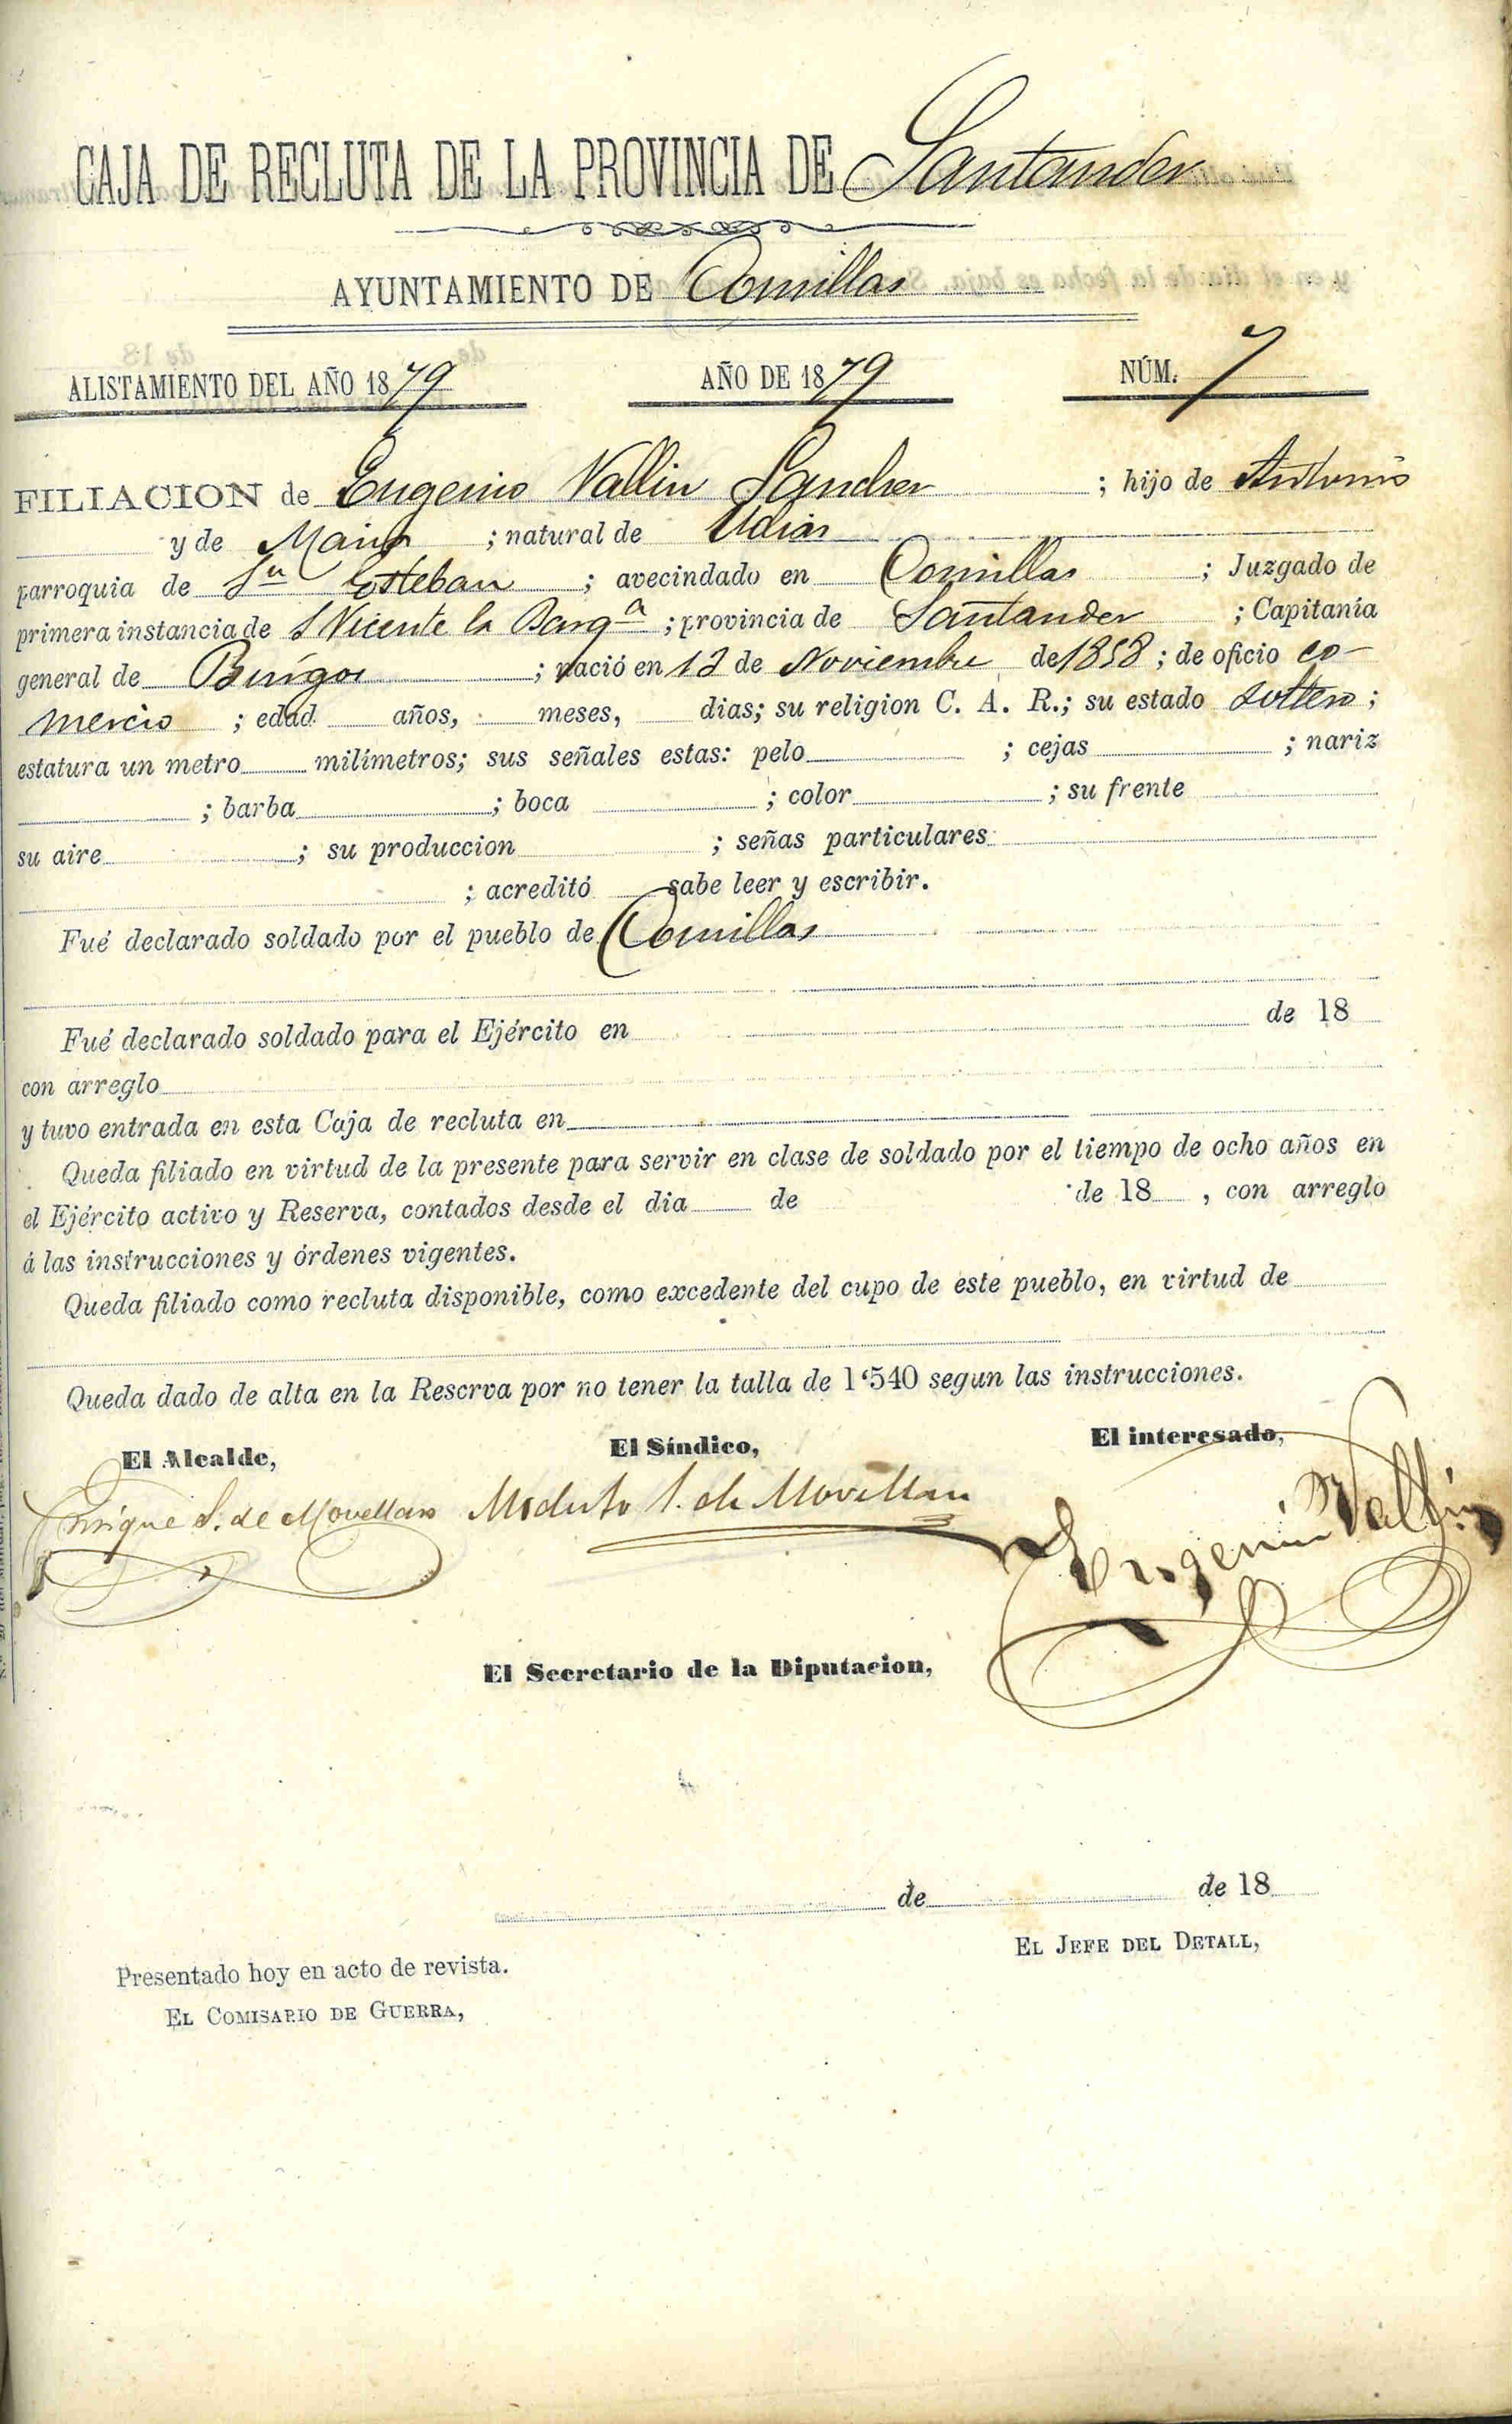 CAJA DE RECLUTA DE LA PROVINCIA DE Santander
AYUNTAMIENTO DE Comillas
ALISTAMIENTO DEL AÑO 1879 AÑO DE 1879 NÚM. 7
FILIACION de Eugenio Vallin Sanchez ; hijo de Antonio
y de Maria ; natural de Udias
parroquia de Sn Esteban ; avecindado en Comillas ; Juzgado de
primera instancia de S Vicente la Barqa ; provincia de Santander ; Capitanía
general de Burgos ; nació en 13 de Noviembre de 1858 ; de oficio co-
mercio ; edad años, meses, dias; su religion C. A. R.; su estado soltero ;
estatura un metro milímetros; sus señales estas: pelo ; cejas ; nariz
; barba ; boca ; color ; su frente
su aire ; su produccion ; señas particulares
; acreditó sabe leer y escribir.
Fué declarado soldado por el pueblo de Comillas
Fué declarado soldado para el Ejército en de 18
con arreglo
y tuvo entrada en esta Caja de recluta en
Queda filiado en virtud de la presente para servir en clase de soldado por el tiempo de ocho años en
el Ejército activo y Reserva, contados desde el dia de de 18 , con arreglo
á las instrucciones y órdenes vigentes.
Queda filiado como recluta disponible, como excedente del cupo de este pueblo, en virtud de
Queda dado de alta en la Reserva por no tener la talla de 1‘540 segun las instrucciones.
El Alcalde, El Síndico, El interesado,
Enrique S. de Movellan Modesto S. de Movellan Eugenio Vallin
El Secretario de la Diputacion,
de de 18
EL JEFE DEL DETALL,
Presentado hoy en acto de revista.
EL COMISARIO DE GUERRA,